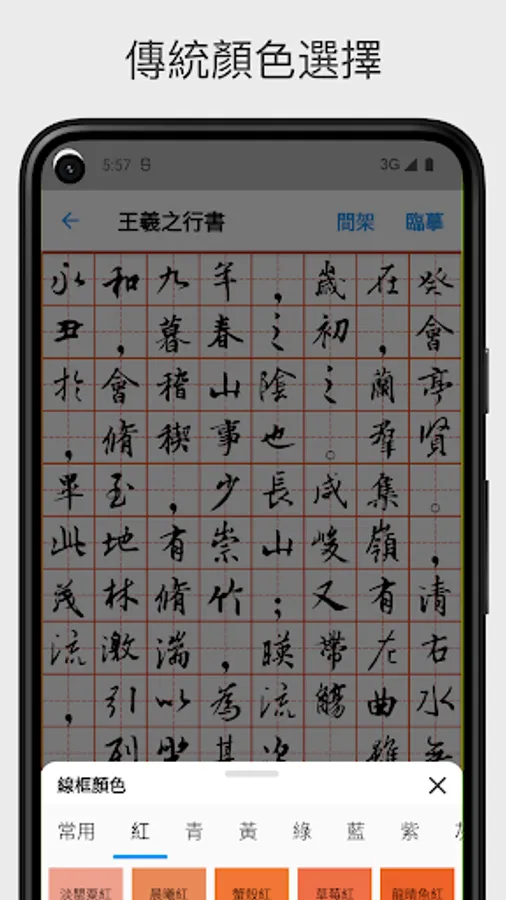 傳統顏色選擇
5:57 3G
王羲之行書 間架 臨摹
永和九年，歲在癸
丑，暮春之初，會
於會稽山陰之蘭亭
，脩稧事也。羣賢
畢至，少長咸集。
此地有崇山峻嶺，
茂林脩竹；又有清
流激湍，暎帶左右
，引以為流觴曲水
列坐其次 雖無
線框顏色
常用 紅 青 黃 綠 藍 紫
淡罌粟紅 晨曦紅 蟹殼紅 草莓紅 龍睛魚紅